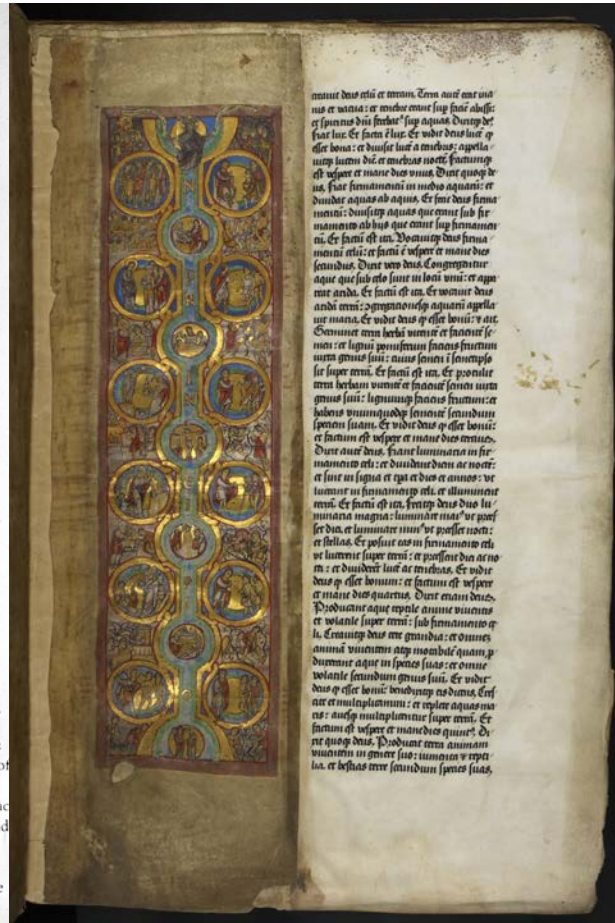 creauit deus celū et terram. Terra autē erat ina
nis et vacua: et tenebre erant sup faciē abissi:
et spiritus dñi ferebat' sup aquas. Dixitqz de'
fiat lux. Et facta ē lux. Et vidit deus lucē qz
esset bona: et diuisit lucē a tenebris: appella
uitqz lucem diē et tenebras noctē. Factumqz
est vespere et mane dies vnus. Dixit quoqz de
us. Fiat firmamentū in medio aquarū: et
diuidat aquas ab aquis. Et fecit deus firma
mentū: diuisitqz aquas que erant sub fir
mamento ab hijs que erant sup firmamen
tū. Et factū est ita. Vocauitqz deus firma
mentū celū: et factū ē vespere et mane dies
secundus. Dixit vero deus. Congregentur
aque que sub celo sunt in locū vnū: et appa
reat arida. Et factū est ita. Et vocauit deus
aridā terrā: ꝯgregationesqz aquarū appella
uit maria. Et vidit deus qz esset bonū: et ait.
Germinet terra herbā virentē et facientē se
men: et lignū pomiferum faciens fructum
iuxta genus suū: cuius semen ī semetipso
sit super terrā. Et factū est ita. Et protulit
terra herbam virentē et facientē semen iuxta
genus suū: lignumqz faciens fructum: et
habens vnumquodqz sementē secundum
speciem suam. Et vidit deus qz esset bonū:
et factum est vespere et mane dies tercius.
Dixit autē deus. Fiant luminaria in fir
mamento celi: et diuident diem ac noctē:
et sint in signa et tpa et dies et annos: vt
luceant in firmamento celi. et illuminent
terrā. Et factū est ita. Fecitqz deus duo lu
minaria magna: luminare mai' vt preess
set diei. et luminare min' vt preesset nocti:
et stellas. Et posuit eas in firmamento celi
vt lucerent super terrā: et preessent diei ac no
cti: et diuiderēt lucē ac tenebras. Et vidit
deus qz esset bonum: et factum est vespere
et mane dies quartus. Dixit etiam deus.
Producant aque reptile anime viuentis
et volatile super terrā: sub firmamento ce
li. Creauitqz deus cete grandia: et omnez
animā viuentem atqz motabilē quam p
duxerant aque in species suas: et omne
volatile secundum genus suū. Et vidit
deus qz esset bonū: benedixitqz eis dicens. Cres
cite et multiplicamini: et replete aquas ma
ris: auesqz multiplicentur super terrā. Et
factum est vespere et mane dies quintus. Di
xit quoqz deus. Producat terra animam
viuentem in genere suo: iumenta et repti
lia. et bestias terre secundum species suas.